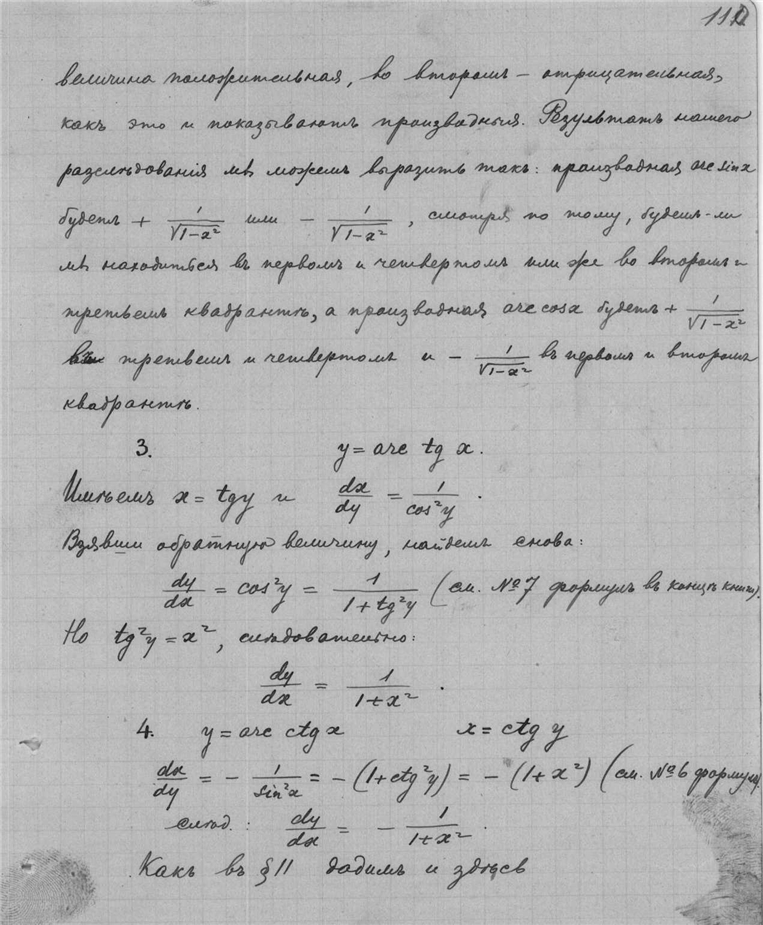 111
величина положительная, во второмъ – отрицательная,
какъ это и показываютъ производныя. Результатъ нашего
разслѣдованія мы можемъ выразить такъ: производная arc sin x
будетъ + 1/√(1-x²) или - 1/√(1-x²), смотря по тому, будемъ-ли
мы находиться въ первомъ и четвертомъ или же во второмъ и
третьемъ квадрантѣ, а производная arc cos x будетъ + 1/√(1-x²)
въ третьемъ и четвертомъ и - 1/√(1-x²) въ первомъ и второмъ
квадрантѣ.
3. y = arc tg x.
Имѣемъ x = tg y и dx/dy = 1/cos²y.
Взявши обратную величину, найдемъ снова:
dy/dx = cos²y = 1/(1+tg²y) (см. №7 формулъ въ концѣ книги).
Но tg²y = x², слѣдовательно:
dy/dx = 1/(1+x²).
4. y = arc ctg x x = ctg y
dx/dy = - 1/sin²x = - (1+ctg²y) = - (1+x²) (см. №6 формулъ).
слѣд.: dy/dx = - 1/(1+x²).
Какъ въ §11 дадимъ и здѣсь